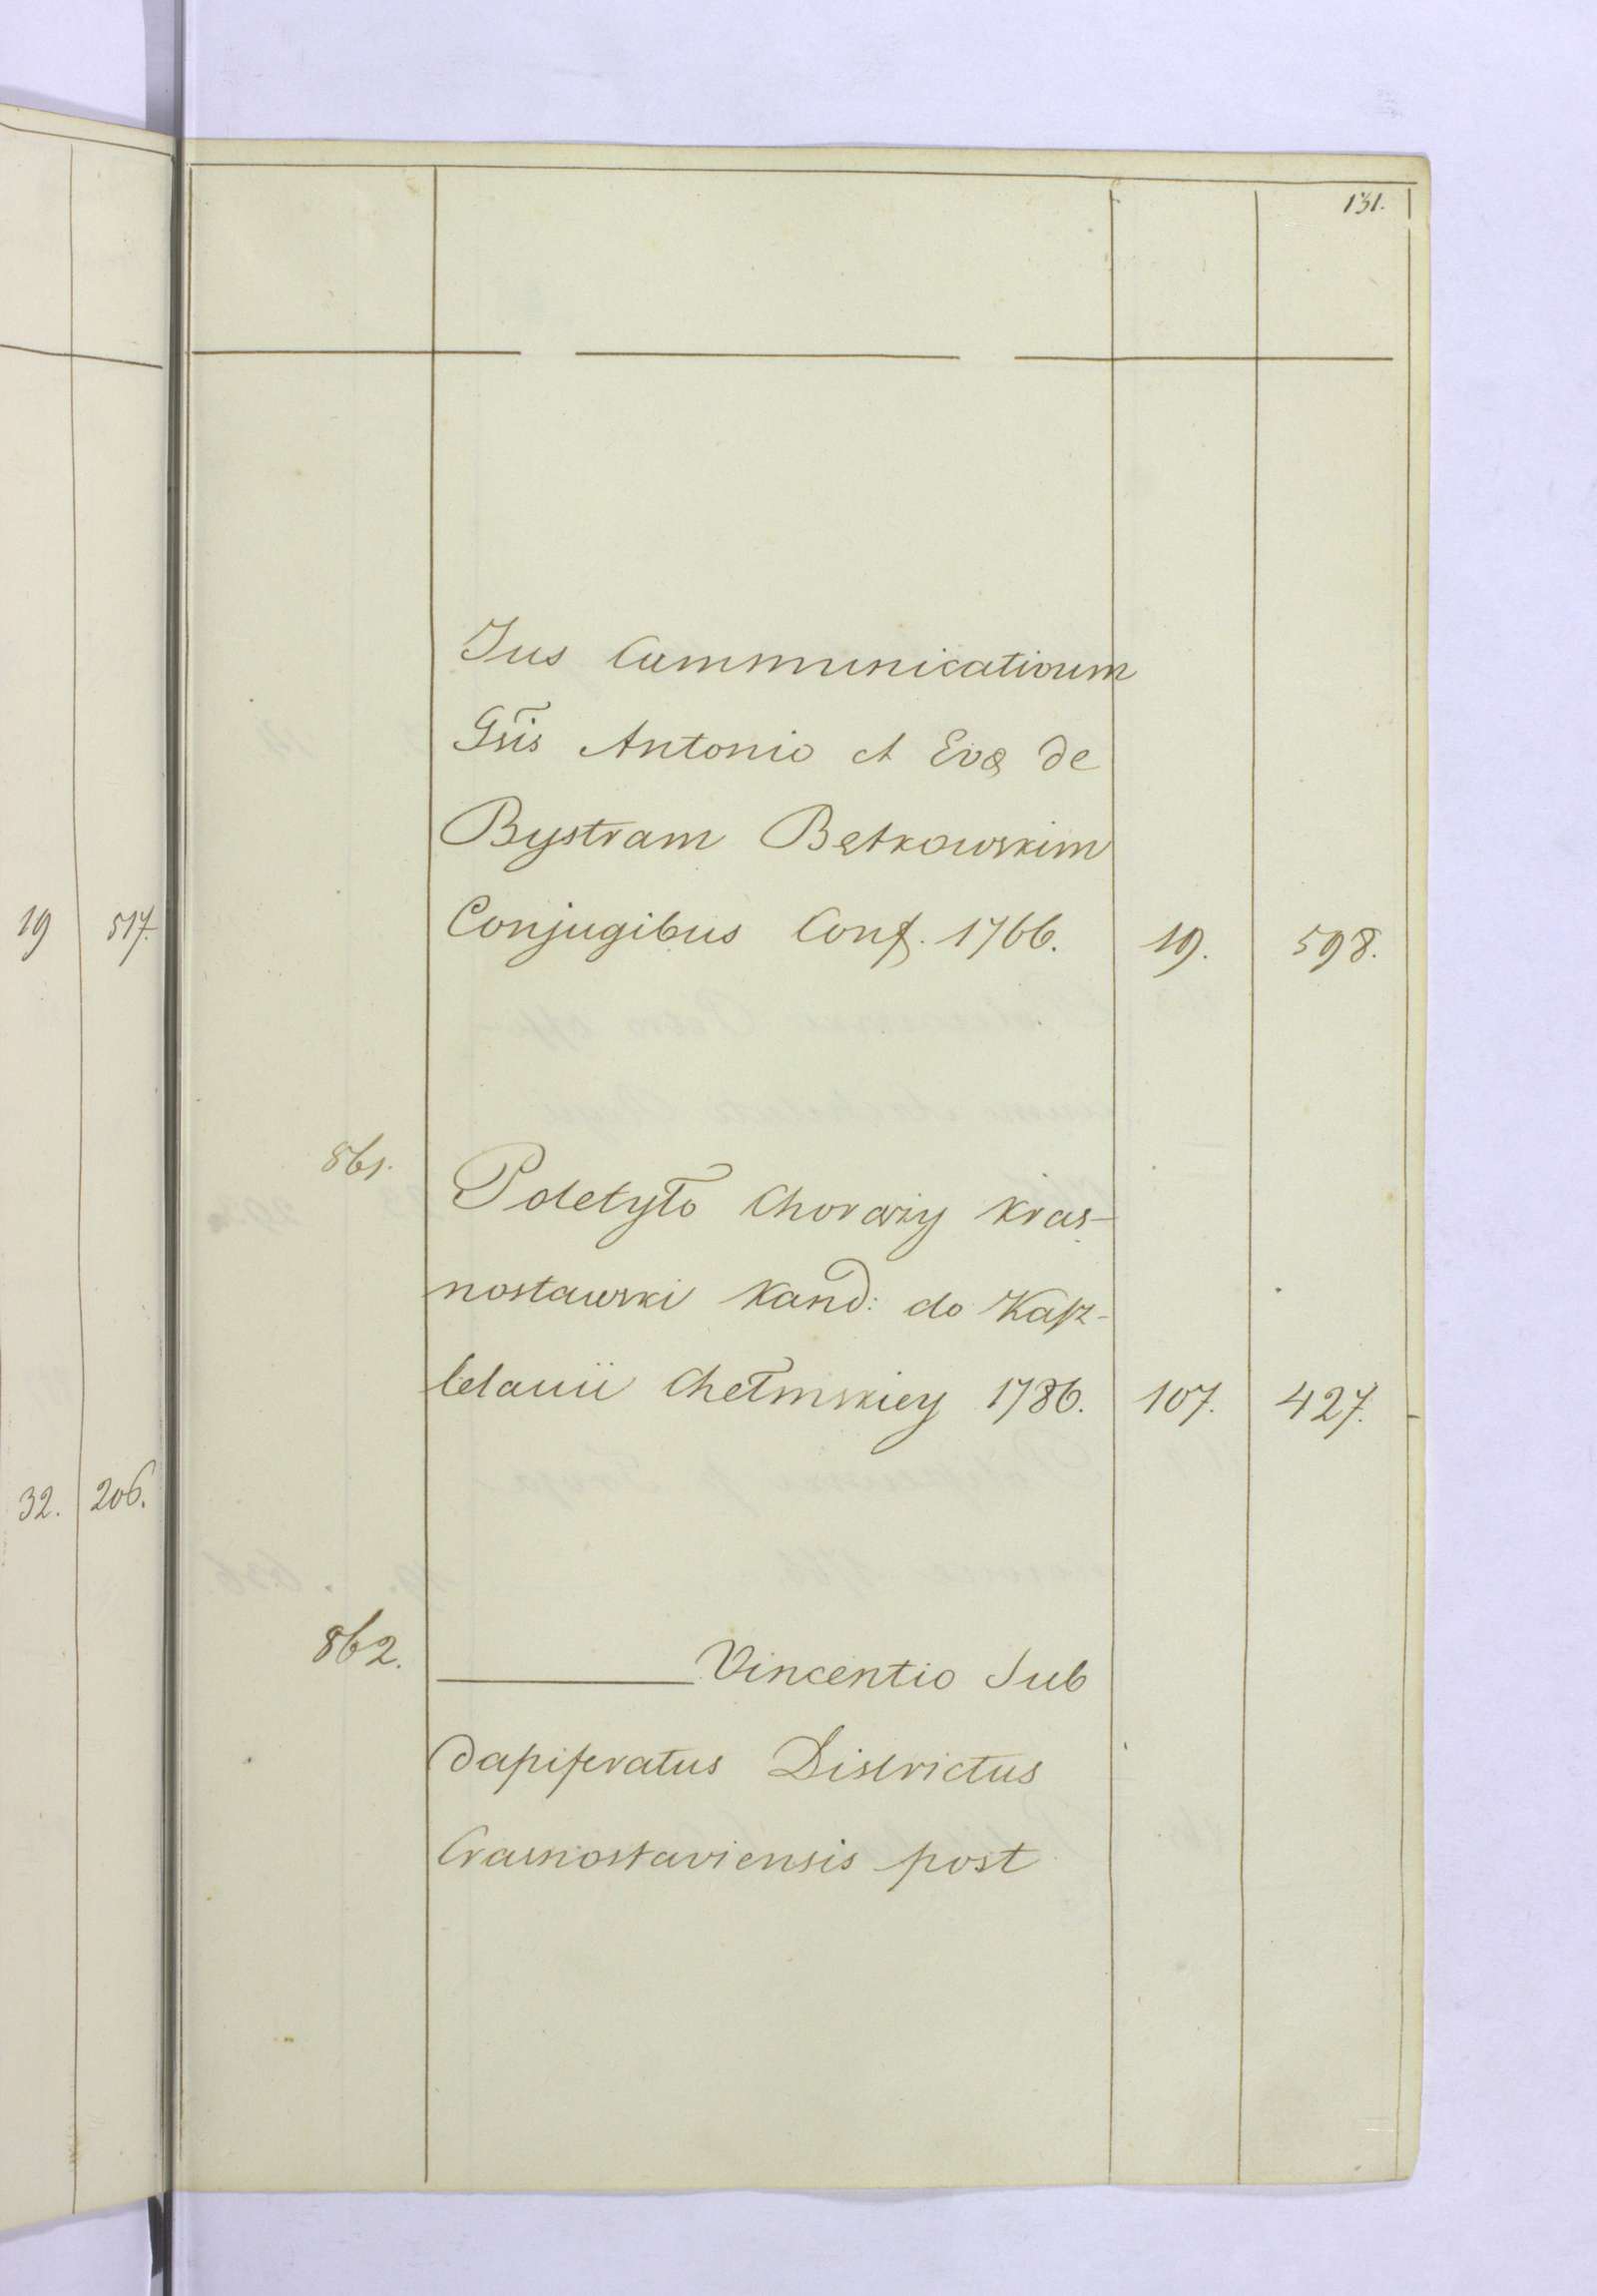 131.
Jus Communicativum
Gsis Antonio et Evæ de
Bystram Bętkowskim
19 517. Conjugibus Conf. 1766. 19. 598.
861. Poletyło Chorąży Kras-
nostawski Kand: do Kasz-
telanii Chełmskiey 1786. 107. 427.
32. 206.
862. ——— Vincentio Sub
dapiferatus Districtus
Crasnostaviensis post